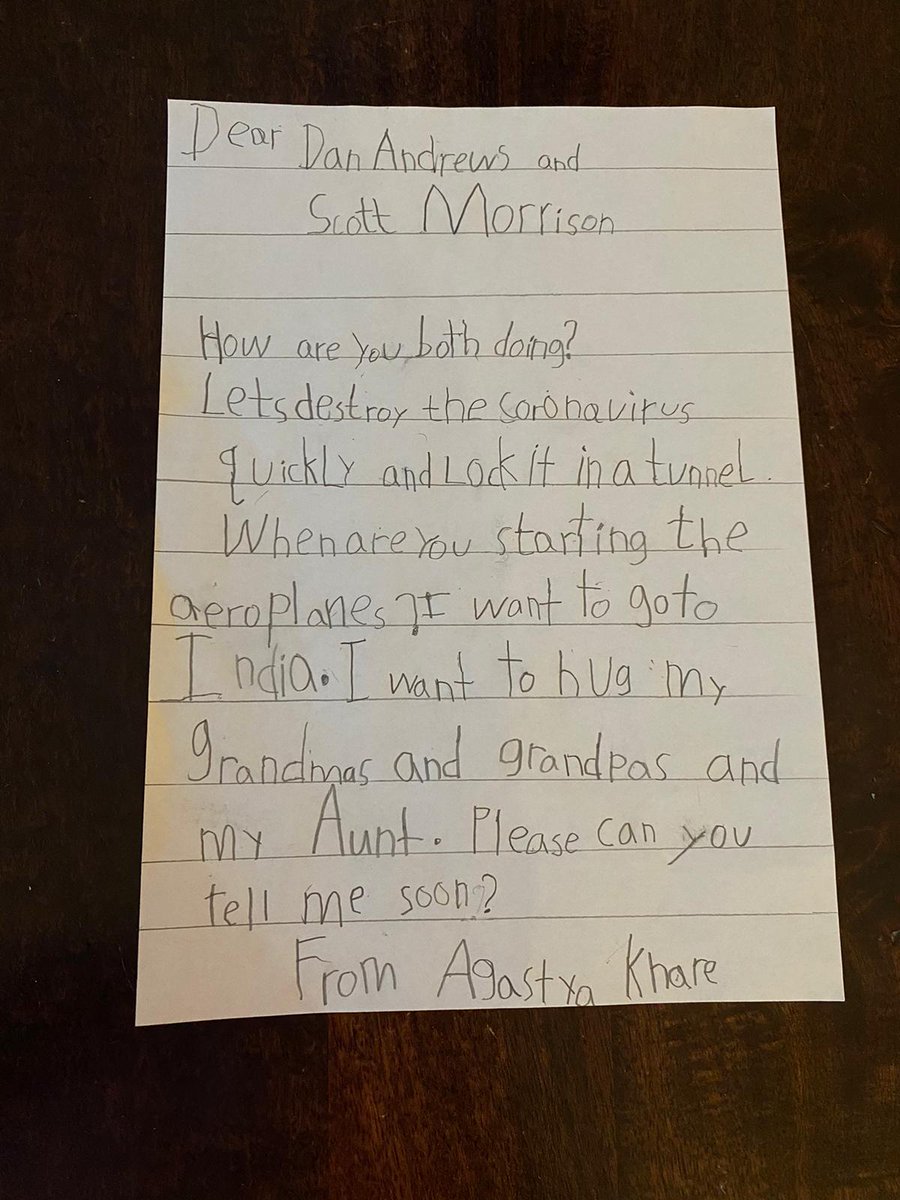 Dear Dan Andrews and
Scott Morrison
How are you both doing?
Lets destroy the coronavirus
quickly and Lock it in a tunnel.
When are you starting the
aeroplanes? I want to go to
India. I want to hug my
grandmas and grandpas and
my Aunt. Please can you
tell me soon?
From Agastya Khare